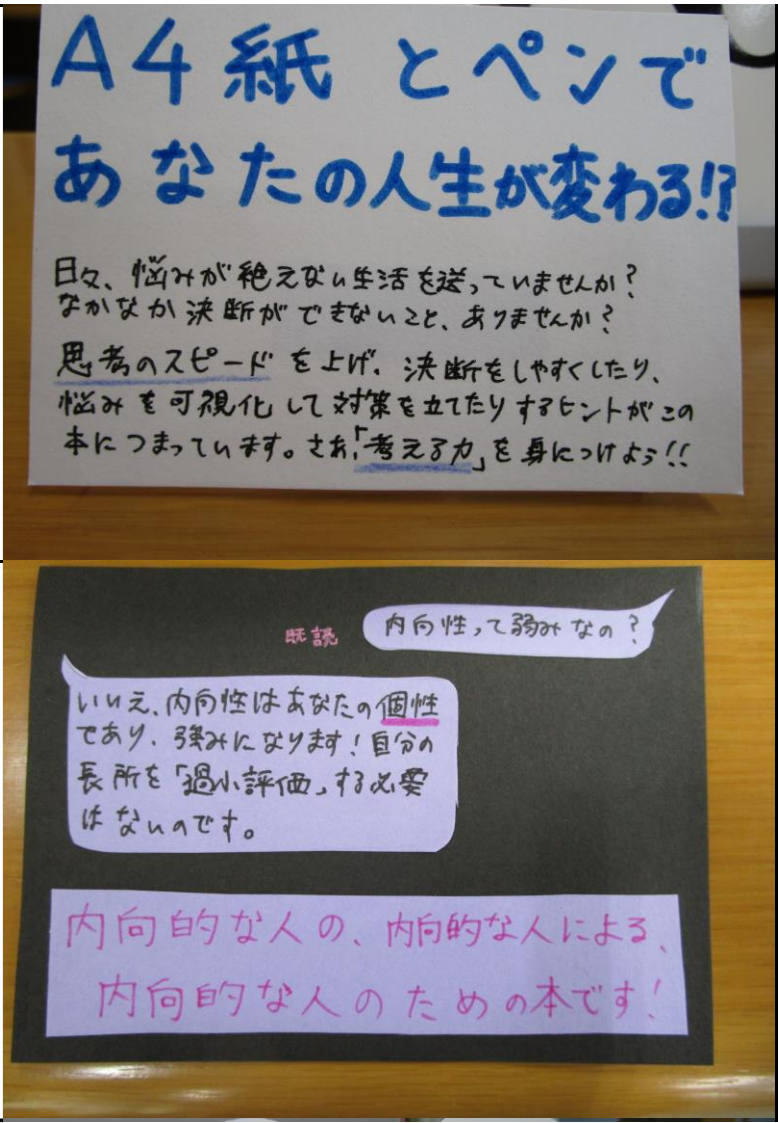 A4紙とペンで
あなたの人生が変わる!?
日々、悩みが絶えない生活を送っていませんか?
なかなか決断ができないこと、ありませんか?
思考のスピードを上げ、決断をしやすくしたり、
悩みを可視化して対策を立てたりするヒントがこの
本につまっています。さあ、「考える力」を身につけよう!!
内向性って弱みなの?
既読
いいえ、内向性はあなたの個性
であり、強みになります!自分の
長所を「過小評価」する必要
はないのです。
内向的な人の、内向的な人による、
内向的な人のための本です!